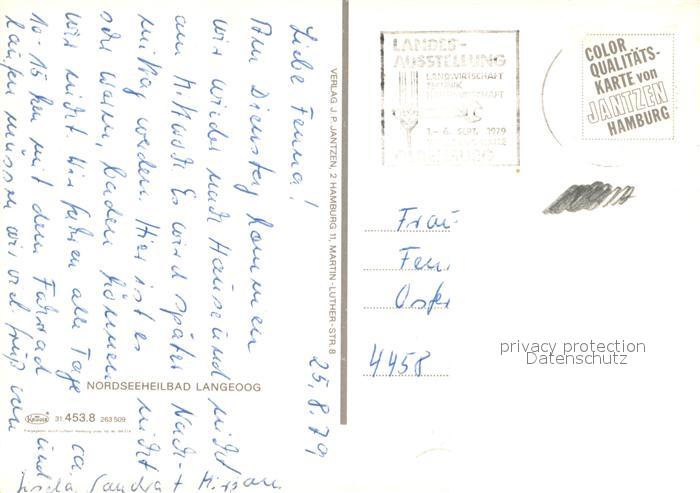 25.8.79
Liebe Fenna!
Am Dienstag kommen
wir wieder nach Hause und nicht
am M. Es wird später Nach-
mittag werden. Hier ist es nicht
sehr warm, baden können
wir nicht. Wir fahren alle Tage ca.
10-15 km mit dem Fahrrad und
laufen müssen wir viel.
Sandra +
NORDSEEHEILBAD LANGEOOG
KRÜGER 31.453.8 263 509
VERLAG J. P. JANTZEN, 2 HAMBURG 11, MARTIN-LUTHER-STR. 8
LANDES-
AUSSTELLUNG
LANDWIRTSCHAFT
TECHNIK
1.-6. SEPT. 1979
COLOR
QUALITÄTS-
KARTE von
JANTZEN
HAMBURG
Frau
Fen
4458
privacy protection
Datenschutz